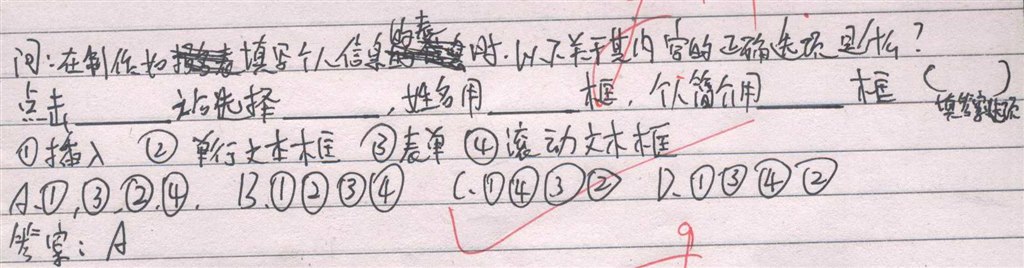 问:在制作如填写个人信息的表时.以下关于其内容的正确选项是什么?
点击______之后选择______,姓名用______框,个人简介用______框 ( )
填答案选项
①插入 ②单行文本框 ③表单 ④滚动文本框
A.①,③,②,④. B.①②③④ C.①④③② D.①③④②
答案:A
9